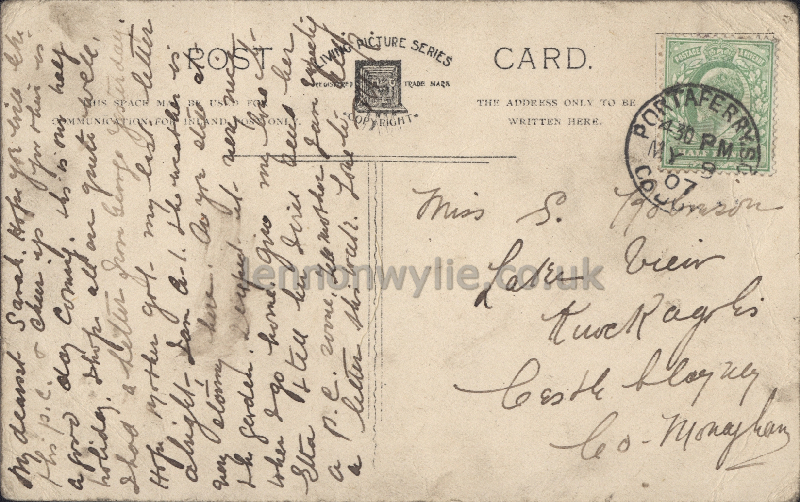 POST CARD.
LIVING PICTURE SERIES
TRADE MARK
COPYRIGHT.
THIS SPACE MAY BE USED FOR
COMMUNICATION FOR INLAND POST ONLY.
THE ADDRESS ONLY TO BE
WRITTEN HERE.
PORTAFERRY
4.30 PM
MY 8
07
My dearest Sarah. Hope you will like
this p.c. & cheer up for this is
a good day coming. This is our half
holiday. I hope all are quite well.
I had a letter from George yesterday.
Hope Mother got my last letter
alright. I am A.1. The weather is
very stormy here. As you state
the garden. very much
when I go home. Give my love to
Etta & tell her I will send her
a P.C. soon, tell mother I am expecting
a letter shortly. Love to
Miss S. Robinson
Lake View
Knockagolis
Castleblayney
Co-Monaghan
lennonwylie.co.uk